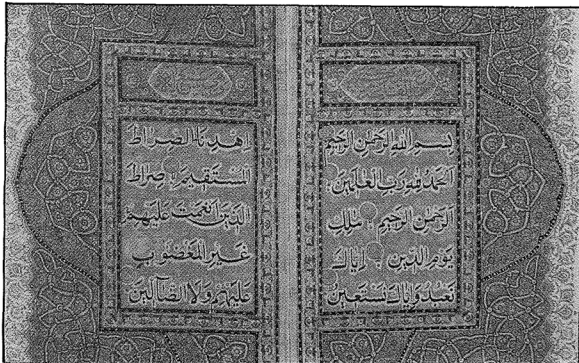 بِسْمِ اللهِ الرَّحْمٰنِ الرَّحِيْمِ
اَلْحَمْدُ لِلّٰهِ رَبِّ الْعَالَمِيْنَ
الرَّحْمٰنِ الرَّحِيْمِ مٰلِكِ
يَوْمِ الدِّيْنِ اِيَّاكَ
نَعْبُدُ وَاِيَّاكَ نَسْتَعِيْنُ
اِهْدِنَا الصِّرَاطَ
الْمُسْتَقِيْمَ صِرَاطَ
الَّذِيْنَ اَنْعَمْتَ عَلَيْهِمْ
غَيْرِ الْمَغْضُوْبِ
عَلَيْهِمْ وَلَا الضَّآلِّيْنَ